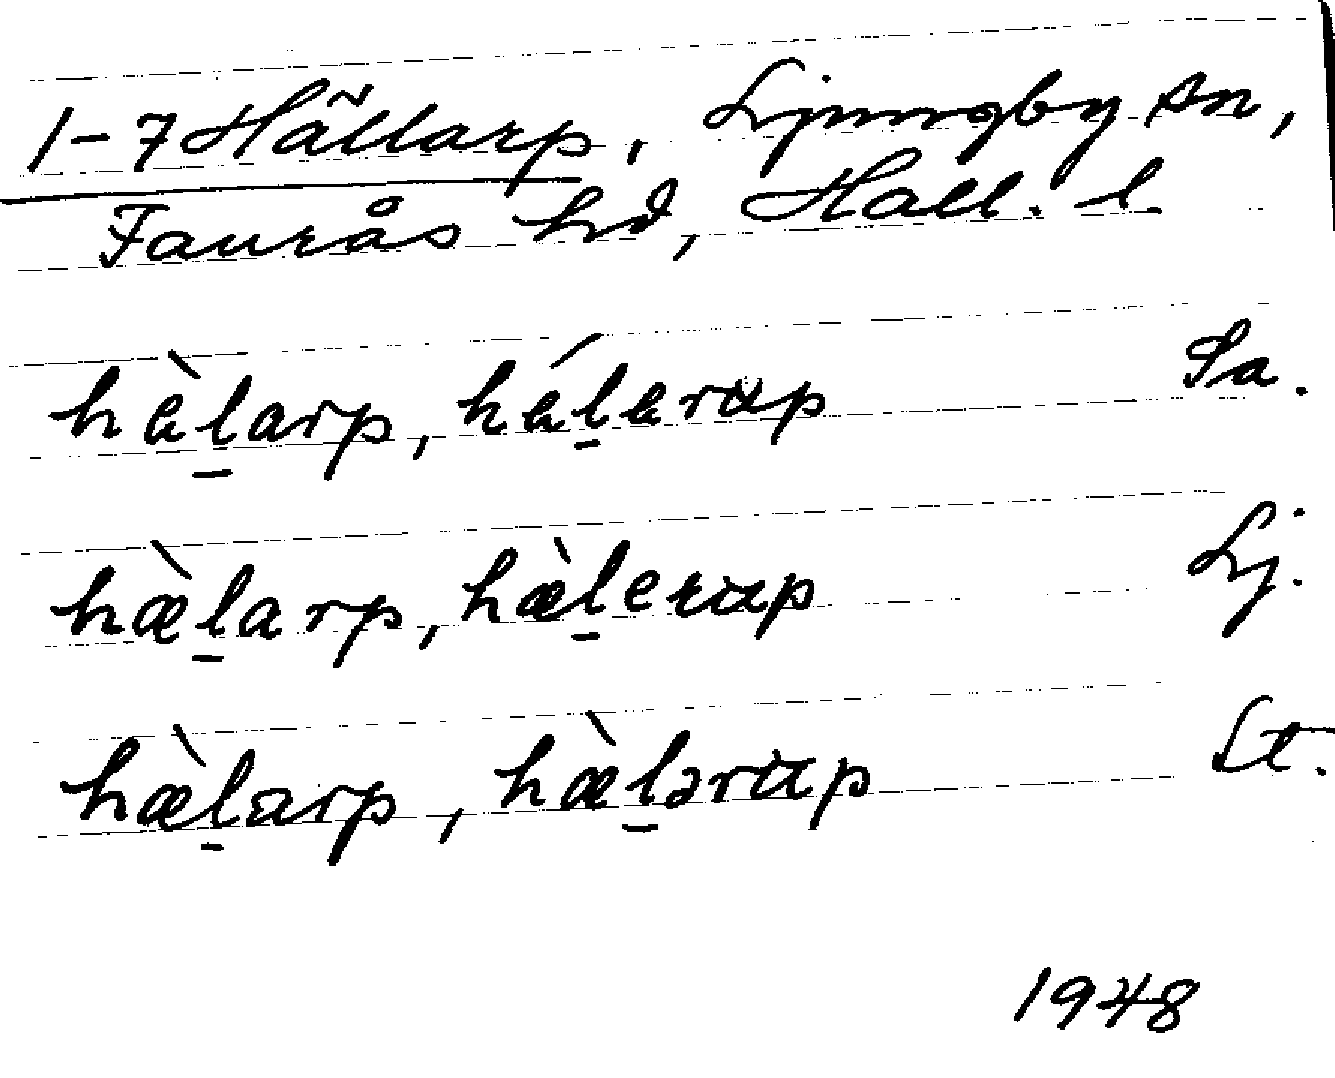 1-7 Hällarp, Ljungby sn,
Faurås hd, Hall. l.
hæ̀l̲arp, hǽl̲ærup Sa.
hæ̀l̲arp, hæ̀l̲erup Lj.
hæ̀l̲arp, hæ̀l̲ərup St.
1948